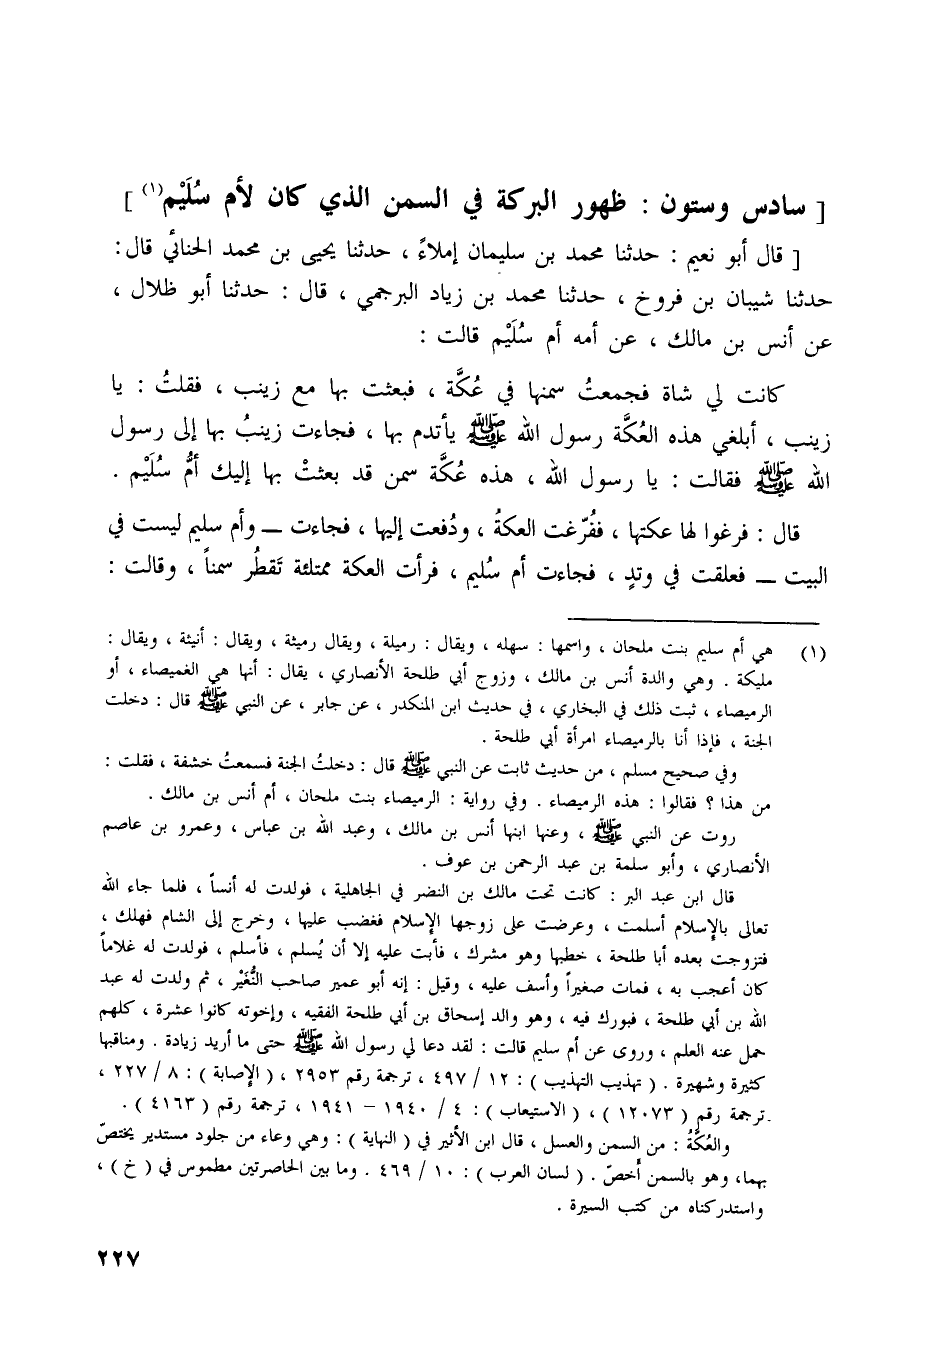 [ سادس وستون : ظهور البركة في السمن الذي كان لأم سُلَيْم(١) ]
[ قال أبو نعيم : حدثنا محمد بن سليمان إملاءً ، حدثنا يحيى بن محمد الحنائي قال :
حدثنا شيبان بن فروخ ، حدثنا محمد بن زياد البرجمي ، قال : حدثنا أبو ظلال ،
عن أنس بن مالك ، عن أمه أم سُلَيْم قالت :
كانت لي شاة فجمعتُ سمنها في عُكَّة ، فبعثت بها مع زينب ، فقلتُ : يا
زينب ، أبلغي هذه العُكَّة رسول الله ﷺ يأتدم بها ، فجاءت زينبُ بها إلى رسول
الله ﷺ فقالت : يا رسول الله ، هذه عُكَّة سمن قد بعثتْ بها إليك أمُّ سُلَيْم .
قال : فرغوا لها عكتها ، ففُرّغت العكةُ ، ودُفعت إليها ، فجاءت ــ وأم سليم ليست في
البيت ــ فعلقت في وتدٍ ، فجاءت أم سُليم ، فرأت العكة ممتلئة تَقطُر سمناً ، وقالت :
(١) هي أم سليم بنت ملحان ، واسمها : سهله ، ويقال : رميلة ، ويقال رميثة ، ويقال : أنيثة ، ويقال :
مليكة . وهي والدة أنس بن مالك ، وزوج أبي طلحة الأنصاري ، يقال : أنها هي الغميصاء ، أو
الرميصاء ، ثبت ذلك في البخاري ، في حديث ابن المنكدر ، عن جابر ، عن النبي ﷺ قال : دخلت
الجنة ، فإذا أنا بالرميصاء امرأة أبي طلحة .
وفي صحيح مسلم ، من حديث ثابت عن النبي ﷺ قال : دخلتُ الجنة فسمعتُ خشفة ، فقلت :
من هذا ؟ فقالوا : هذه الرميصاء . وفي رواية : الرميصاء بنت ملحان ، أم أنس بن مالك .
روت عن النبي ﷺ ، وعنها ابنها أنس بن مالك ، وعبد الله بن عباس ، وعمرو بن عاصم
الأنصاري ، وأبو سلمة بن عبد الرحمن بن عوف .
قال ابن عبد البر : كانت تحت مالك بن النضر في الجاهلية ، فولدت له أنساً ، فلما جاء الله
تعالى بالإسلام أسلمت ، وعرضت على زوجها الإسلام فغضب عليها ، وخرج إلى الشام فهلك ،
فتزوجت بعده أبا طلحة ، خطبها وهو مشرك ، فأبت عليه إلا أن يُسلم ، فأسلم ، فولدت له غلاماً
كان أعجب به ، فمات صغيراً وأسف عليه ، وقيل : إنه أبو عمير صاحب النُّغَيْر ، ثم ولدت له عبد
الله بن أبي طلحة ، فبورك فيه ، وهو والد إسحاق بن أبي طلحة الفقيه ، وإخوته كانوا عشرة ، كلهم
حمل عنه العلم ، وروى عن أم سليم قالت : لقد دعا لي رسول الله ﷺ حتى ما أريد زيادة . ومناقبها
كثيرة وشهيرة . ( تهذيب التهذيب ) : ١٢ / ٤٩٧ ، ترجمة رقم ٢٩٥٣ ، ( الإصابة ) : ٨ / ٢٢٧ ،
ترجمة رقم ( ١٢٠٧٣ ) ، ( الاستيعاب ) : ٤ / ١٩٤٠ - ١٩٤١ ، ترجمة رقم ( ٤١٦٣ ) .
والعُكَّةُ : من السمن والعسل ، قال ابن الأثير في ( النهاية ) : وهي وعاء من جلود مستدير يختصّ
بهما، وهو بالسمن أخصّ . ( لسان العرب ) : ١٠ / ٤٦٩ . وما بين الحاصرتين مطموس في ( خ ) ،
واستدركناه من كتب السيرة .
٢٢٧